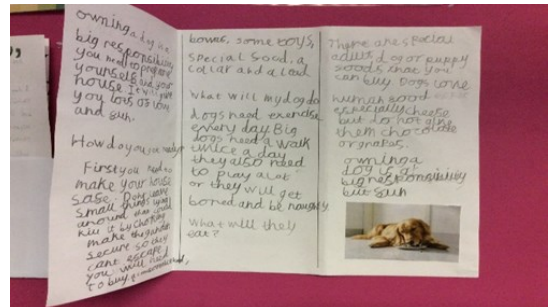 owning a dog is a
big responsibility
you need to prepare
yourself and your
house. It will give
you lots of love
and fun.
How do you get ready?
First you need to
make your house
safe. Dont leave
small things lying
around that could
kill it by choking
make the garden
secure so they
cant escape
you will need
to buy
bowes, some toys,
special food, a
collar and a lead
what will my dog do
dogs need exercise
every day. Big
dogs need a walk
twice a day
they also need
to play alot
or they will get
bored and be naughty.
what will they
eat?
There are special
adult dog or puppy
foods that you
can buy. Dogs love
human food
especially cheese
but do not give
them chocolate
or grapes.
owning a
dog is a
big responsibility
but fun